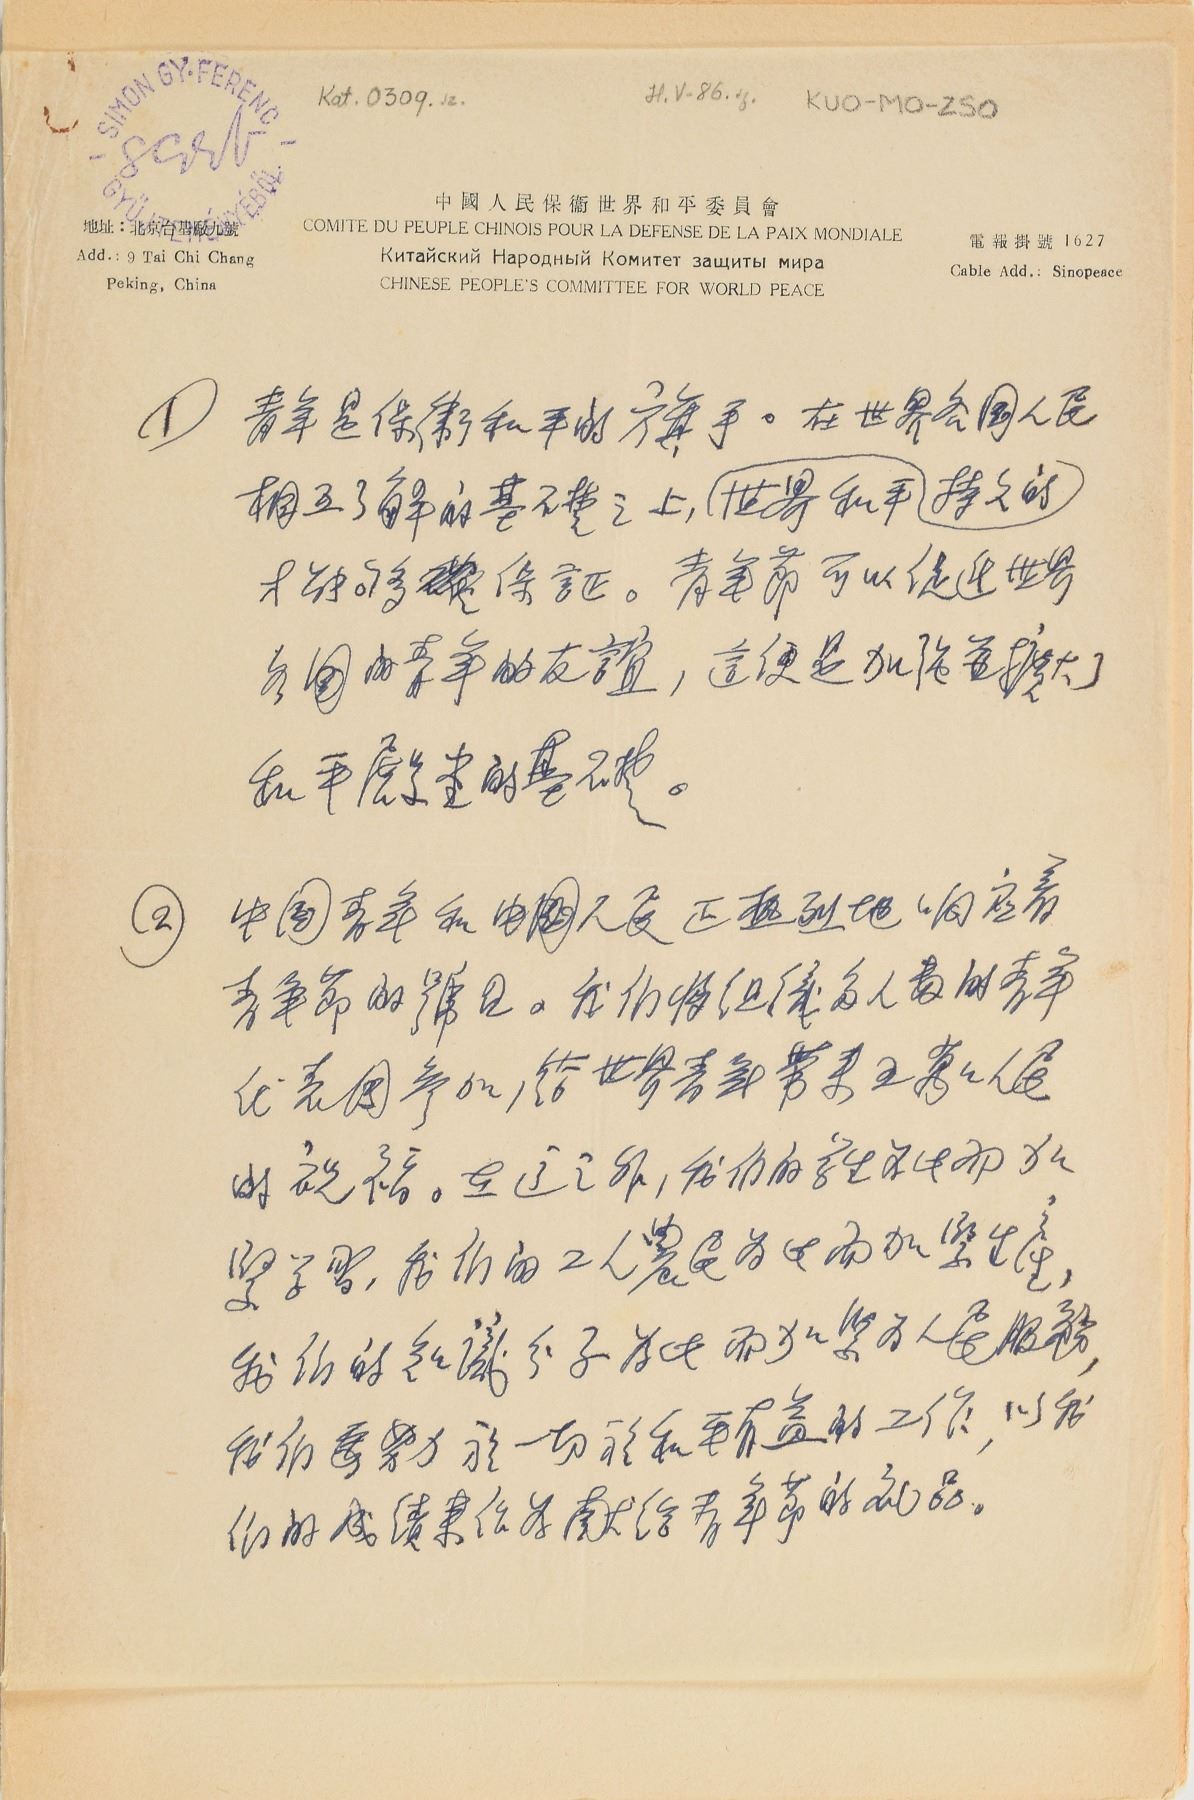 SIMON GY. FERENC
GYŰJTEMÉNYÉBŐL
Kat. 0309. sz.
H.V-86. sz.
KUO-MO-ZSO
中國人民保衞世界和平委員會
COMITE DU PEUPLE CHINOIS POUR LA DEFENSE DE LA PAIX MONDIALE
Китайский Народный Комитет защиты мира
CHINESE PEOPLE'S COMMITTEE FOR WORLD PEACE
地址：北京台基廠九號
Add.: 9 Tai Chi Chang
Peking, China
電報掛號 1627
Cable Add.: Sinopeace
① 青年是保衛和平的旗手。在世界各国人民
相互了解的基礎之上，世界和平持久的
才能够 保証。青年節可以促進世界
各国的青年的友誼，這便是加强並擴大了
和平殿堂的基礎。
② 中国青年和中国人民正热烈地响应着
青年節的號召。我们将组織多人数的青年
代表团参加，给世界青年带来五萬万人民
的祝福。在这之外，我们的学生为此而加
紧学習，我们的工人農民为此而加緊生産，
我们的知識分子为此而加紧为人民服務，
我们要努力於一切於和平有益的工作，以我
们的成績来作为献给青年節的礼品。